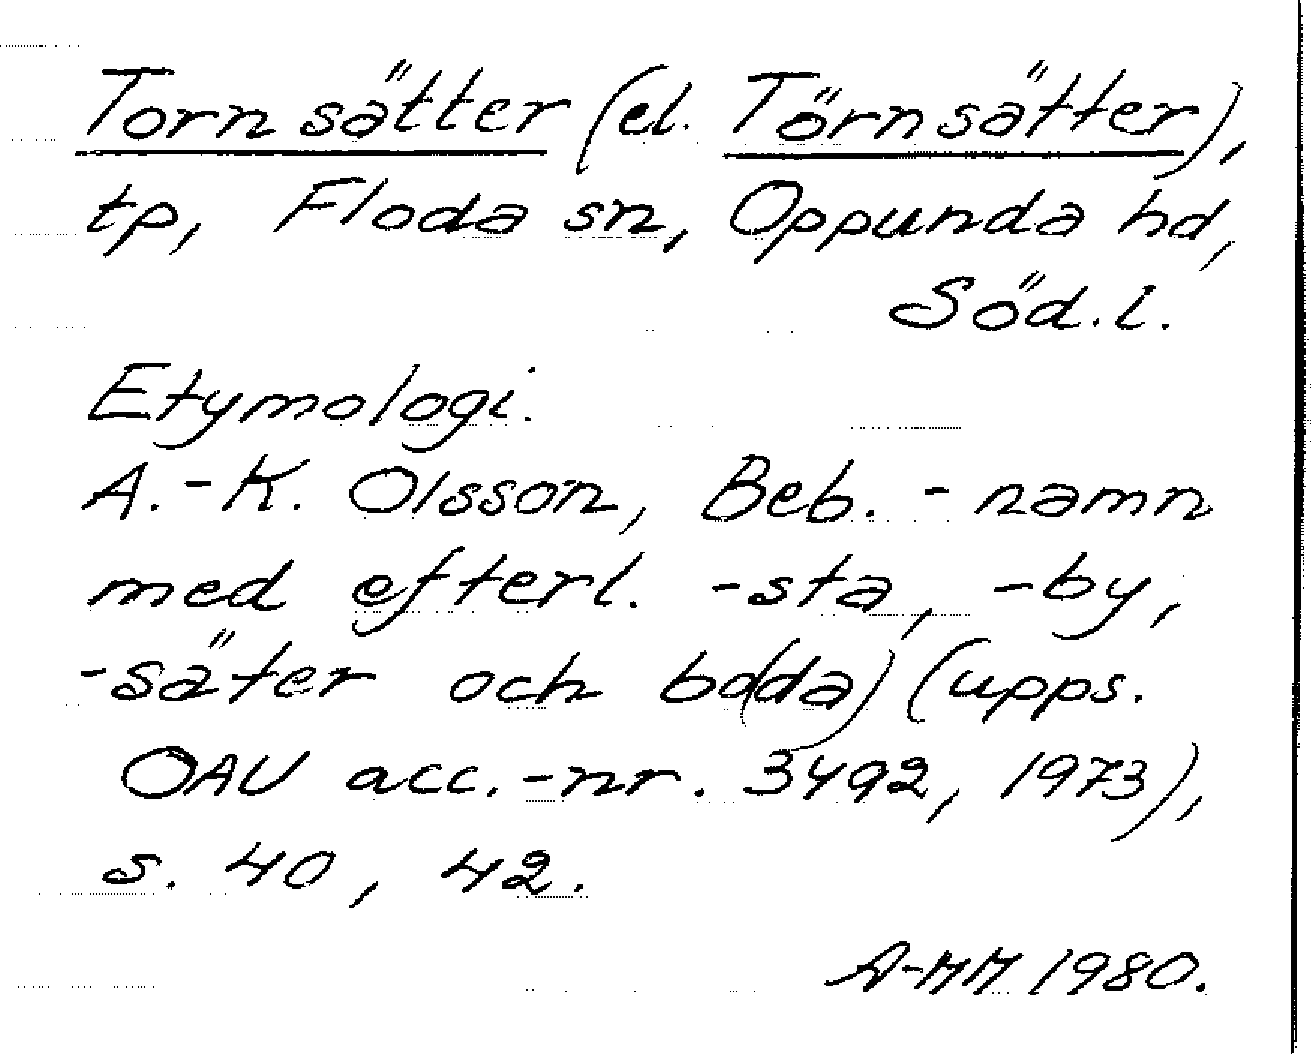 Tornsätter (el. Törnsätter),
tp, Floda sn, Oppunda hd,
Söd.l.
Etymologi.
A.-K. Olsson, Beb.-namn
med efterl. -sta, -by,
-säter och bo(da) (upps.
OAU acc.-nr. 3492, 1973),
s. 40, 42.
A-MM 1980.